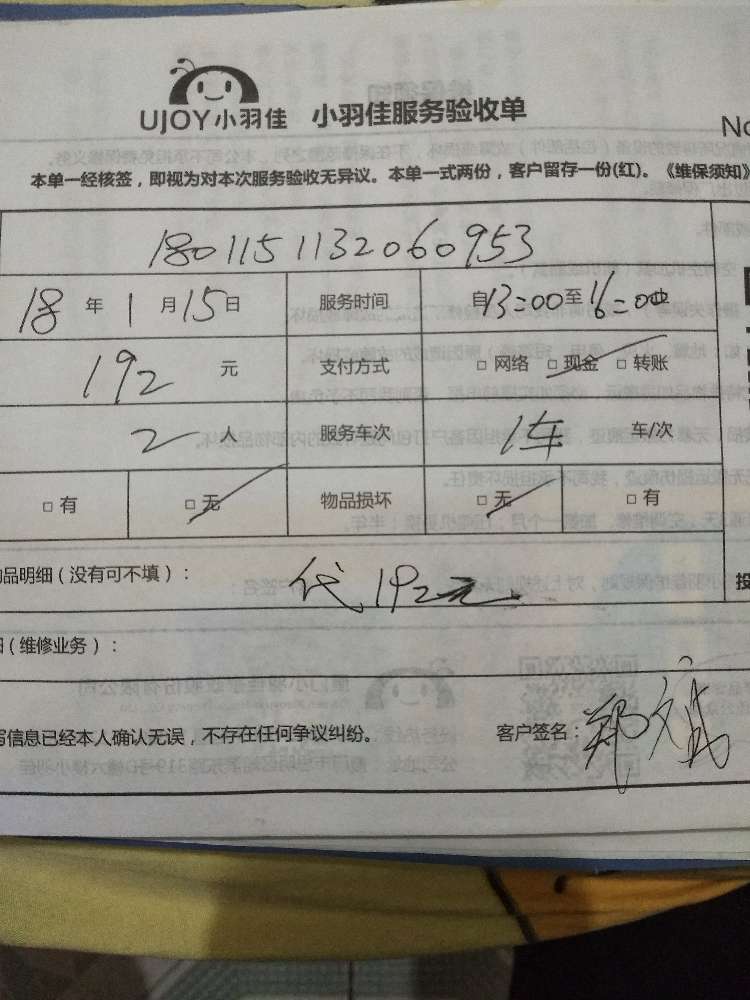 UJOY小羽佳 小羽佳服务验收单
No
本单一经核签，即视为对本次服务验收无异议。本单一式两份，客户留存一份(红)。《维保须知》
180115113206095​3
18 年 1 月 15 日 服务时间 自13:00至16:00止
192 元 支付方式 □ 网络 □ 现金 □ 转账
2 人 服务车次 1车 车/次
□ 有 □ 无 物品损坏 □ 无 □ 有
品明细（没有可不填）： 代192元 投
（维修业务）：
写信息已经本人确认无误，不存在任何争议纠纷。 客户签名：郑文斌